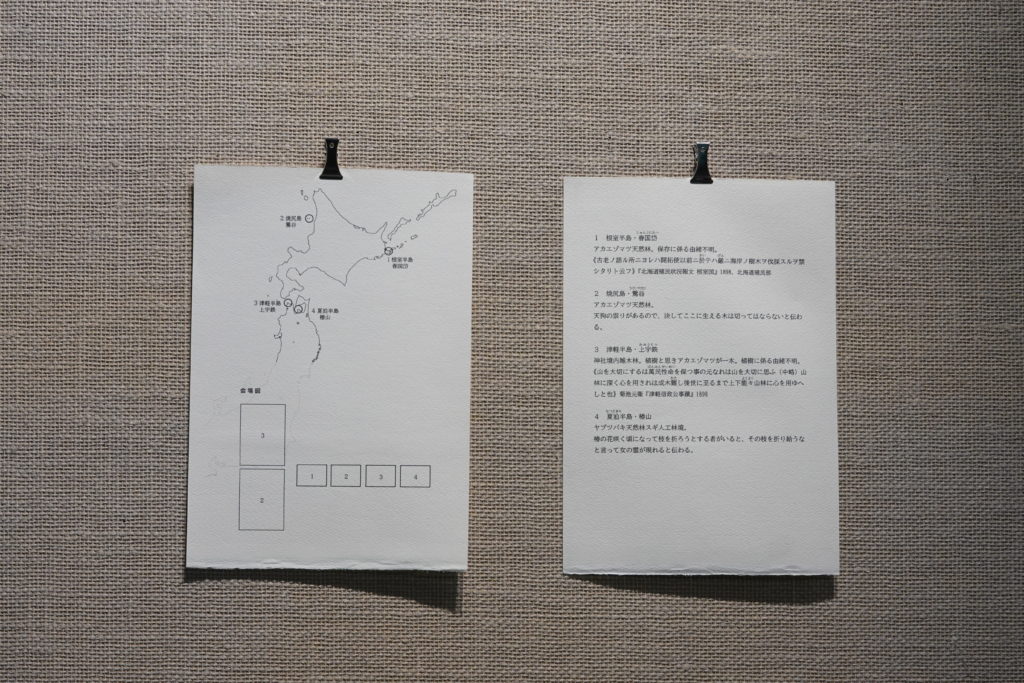 2 焼尻島
鶯谷
1 根室半島
春国岱
3 津軽半島
上宇鉄
4 夏泊半島
椿山
会場図
3
2
1 2 3 4
1 根室半島・春国岱
アカエゾマツ天然林。保存に係る由緒不明。
《古老ノ語ル所ニヨレハ開拓使以前ニ於テハ厳ニ海岸ノ樹木ヲ伐採スルヲ禁
シタリト云フ》『北海道殖民状況報文 根室国』1898、北海道殖民部
2 焼尻島・鶯谷
アカエゾマツ天然林。
天狗の祟りがあるので、決してここに生える木は切ってはならないと伝わ
る。
3 津軽半島・上宇鉄
神社境内雑木林。植樹と思きアカエゾマツが一本。植樹に係る由緒不明。
《山を大切にするは萬民性命を保つ事の元なれは山を大切に思ふ（中略）山
林に深く心を用されは成木難し後世に至るまて上下能々山林に心を用ゆへ
しと也》菊池元衛『津軽信政公事績』1898
4 夏泊半島・椿山
ヤブツバキ天然林スギ人工林境。
椿の花咲く頃になって枝を折ろうとする者がいると、その枝を折り給うな
と言って女の霊が現れると伝わる。